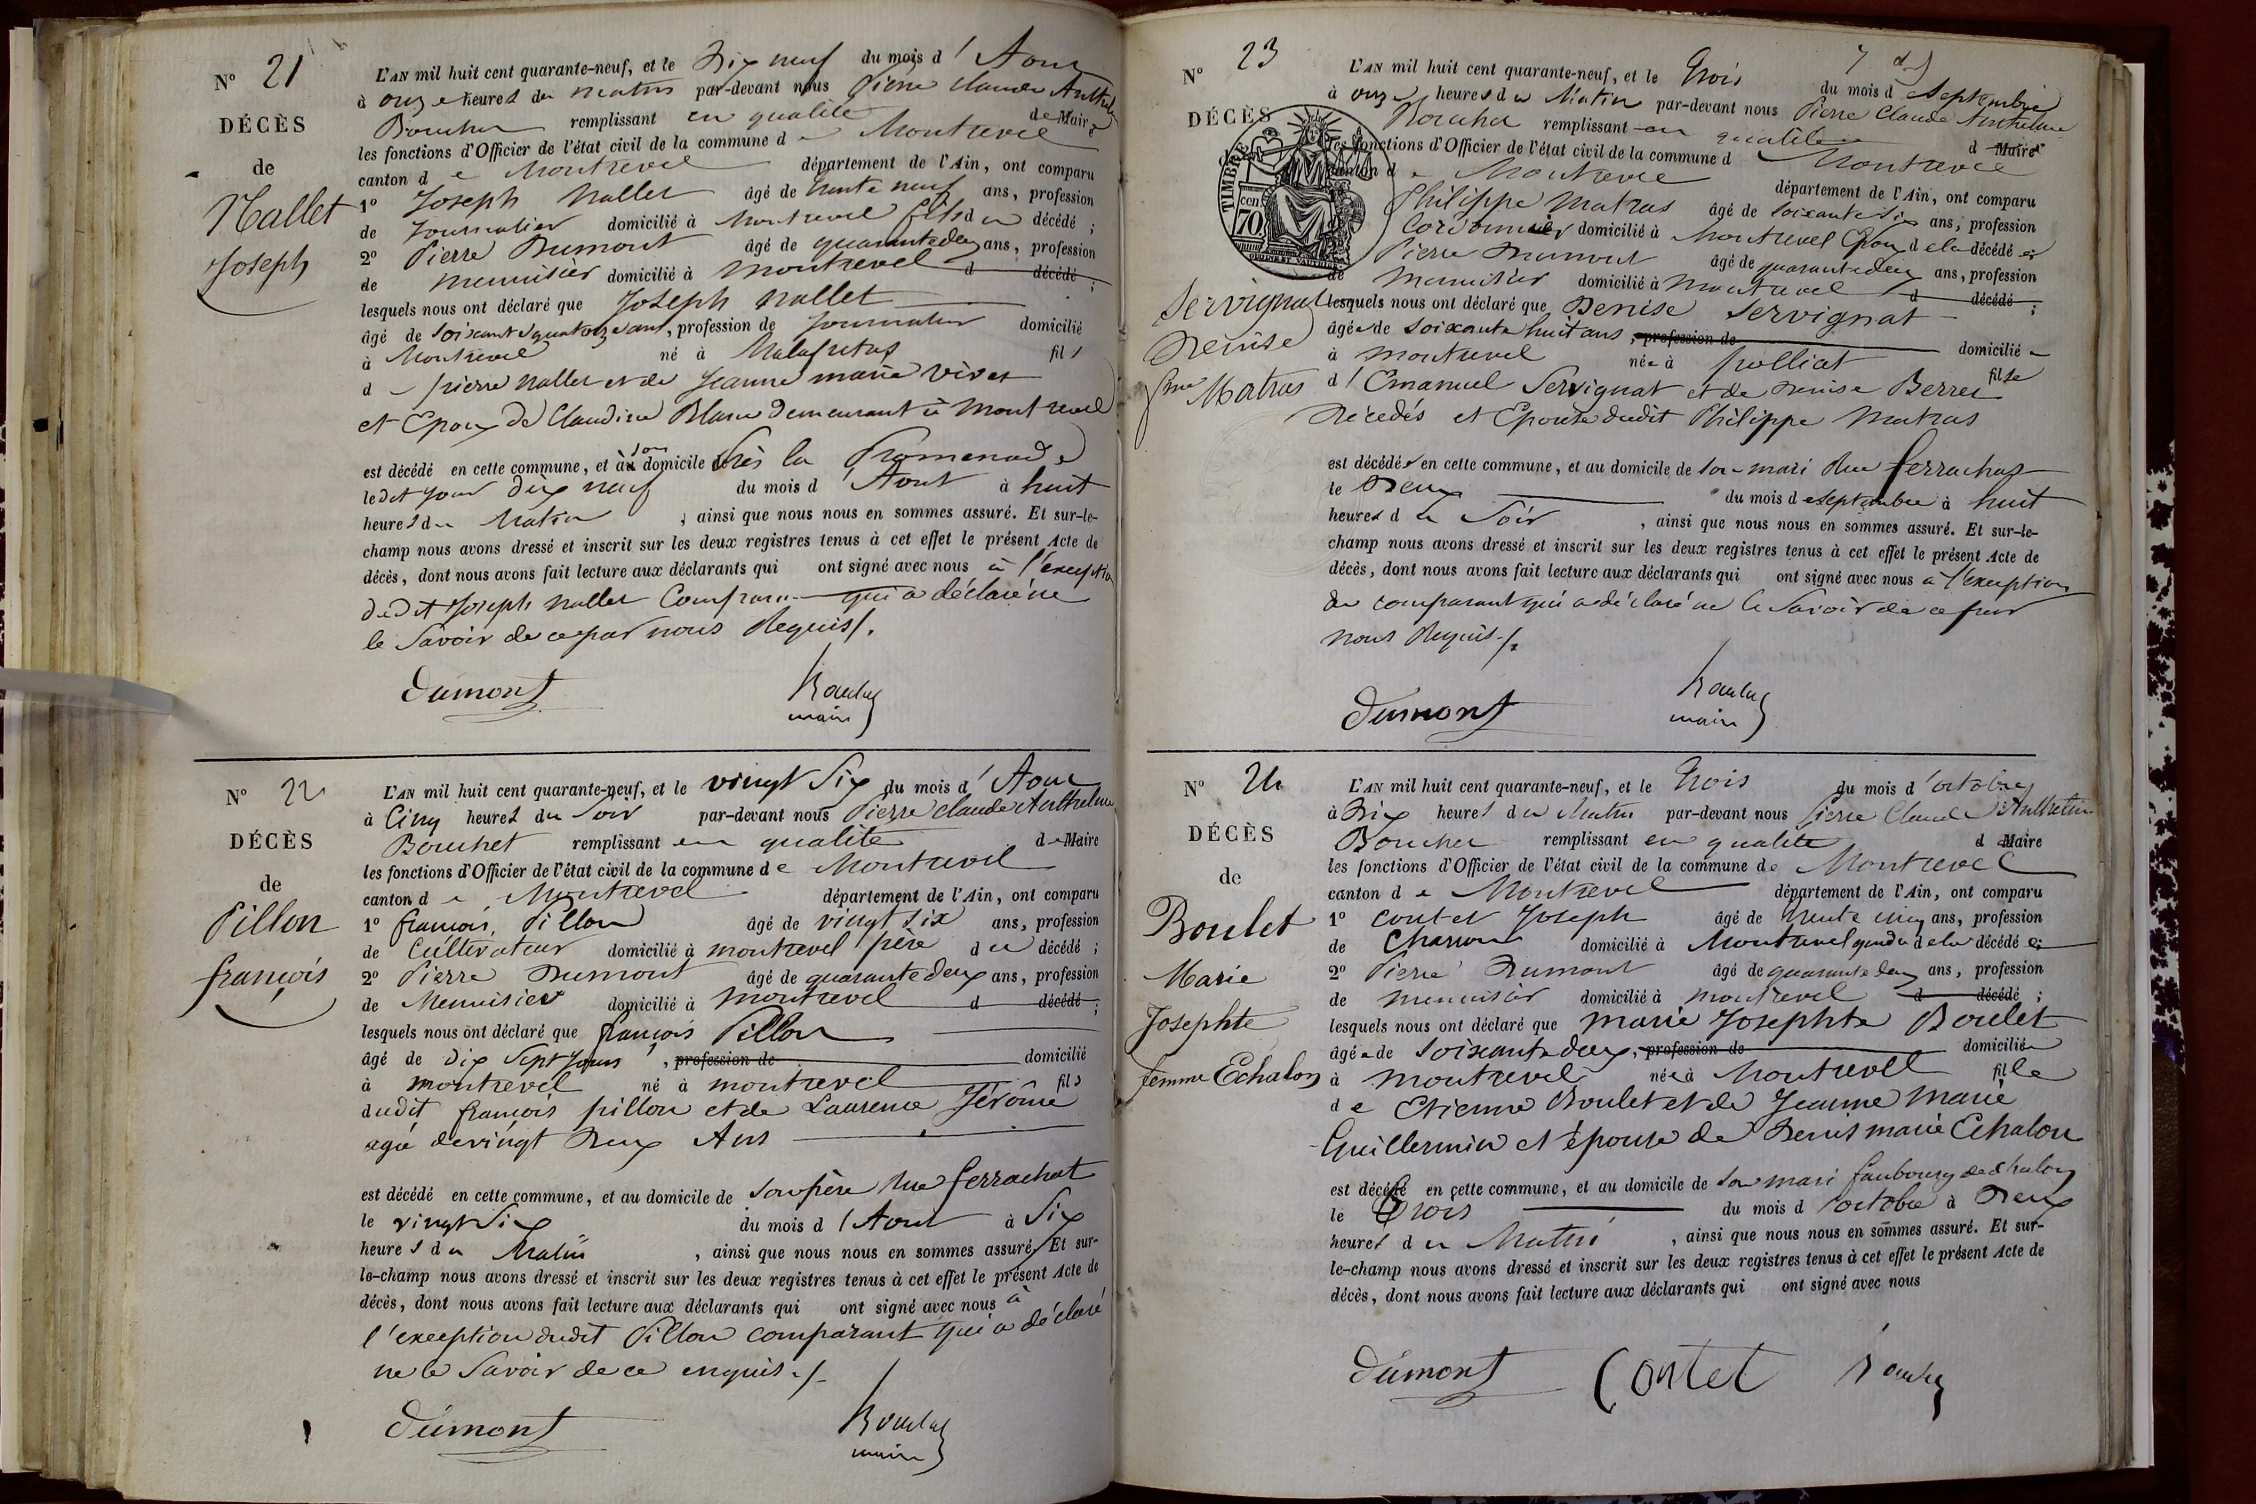 N° 21
DÉCÈS
de
Nallet
Joseph
L'AN mil huit cent quarante-neuf, et le Dix neuf du mois d'Aout
à onze heures du matin par-devant nous Pierre Claude Anthelme
Bouchet remplissant en qualité de Maire
les fonctions d'Officier de l'état civil de la commune de Montrevel
canton de Montrevel département de l'Ain, ont comparu
1° Joseph Nallet âgé de trente neuf ans, profession
de Journalier domicilié à Montrevel fils du décédé ;
2° Pierre Dumont âgé de quarante deux ans, profession
de menuisier domicilié à Montrevel d décédé ;
lesquels nous ont déclaré que Joseph Nallet
âgé de soixante quatorze ans, profession de Journalier domicilié
à Montrevel né à Malafretaz fils
de pierre Nallet et de Jeanne marie Vivet
et Epoux de Claudine Blanc demeurant à Montrevel
est décédé en cette commune, et à son domicile Près la Promenade
ledit jour dix neuf du mois d'Aout à huit
heures du Matin ; ainsi que nous nous en sommes assuré. Et sur-le-
champ nous avons dressé et inscrit sur les deux registres tenus à cet effet le présent Acte de
décès, dont nous avons fait lecture aux déclarants qui ont signé avec nous à l'exception
dudit Joseph Nallet Comparant qui a déclaré ne
le Savoir de ce par nous Requis.
Dumont Bouchet
maire
N° 22
DÉCÈS
de
Pillon
françois
L'AN mil huit cent quarante-neuf, et le vingt Six du mois d'Aout
à Cinq heures du Soir par-devant nous Pierre Claude Anthelme
Bouchet remplissant en qualité de Maire
les fonctions d'Officier de l'état civil de la commune de Montrevel
canton de Montrevel département de l'Ain, ont comparu
1° françois Pillon âgé de vingt six ans, profession
de Cultivateur domicilié à montrevel père du décédé ;
2° Pierre Dumont âgé de quarante deux ans, profession
de Menuisier domicilié à montrevel d décédé ;
lesquels nous ont déclaré que françois Pillon
âgé de dix Sept Jours, profession de domicilié
à montrevel né à montrevel fils
dudit françois pillon et de Laurence Jérôme
agée de vingt Deux Ans
est décédé en cette commune, et au domicile de son père Rue ferrachat
le vingt Six du mois d'Aout à Six
heures du Matin, ainsi que nous nous en sommes assuré. Et sur-
le-champ nous avons dressé et inscrit sur les deux registres tenus à cet effet le présent Acte de
décès, dont nous avons fait lecture aux déclarants qui ont signé avec nous à
l'exception dudit Pillon comparant qui a déclaré
ne le Savoir de ce enquis.
Dumont Bouchet
maire
N° 23
DÉCÈS
TIMBRE
70
Servignat
Denise
fme Matras
L'AN mil huit cent quarante-neuf, et le trois du mois de Septembre
à onze heures du Matin par-devant nous Pierre Claude Anthelme
Bouchet remplissant en qualité d Maire
les fonctions d'Officier de l'état civil de la commune d Montrevel
canton de Montrevel département de l'Ain, ont comparu
Philippe Matras âgé de soixante six ans, profession
Cordonnier domicilié à Montrevel Epoux de la décédée
Pierre Dumont âgé de quarante deux ans, profession
de Menuisier domicilié à Montrevel d décédé ;
lesquels nous ont déclaré que Denise Servignat
âgée de soixante huit ans, profession de domiciliée
à montrevel née à polliat fille
d'Emanuel Servignat et de Denise Berret
Décédés et Epouse dudit Philippe Matras
est décédée en cette commune, et au domicile de son mari Rue ferrachat
le Deux du mois de Septembre à huit
heures du Soir, ainsi que nous nous en sommes assuré. Et sur-le-
champ nous avons dressé et inscrit sur les deux registres tenus à cet effet le présent Acte de
décès, dont nous avons fait lecture aux déclarants qui ont signé avec nous à l'exception
du comparant qui a déclaré ne le Savoir de ce par
nous Requis.
Dumont Bouchet
maire
N° 24
DÉCÈS
de
Boulet
Marie
Josephte
femme Echalon
L'AN mil huit cent quarante-neuf, et le trois du mois d'octobre
à Dix heures du Matin par-devant nous Pierre Claude Anthelme
Bouchet remplissant en qualité d Maire
les fonctions d'Officier de l'état civil de la commune de Montrevel
canton de Montrevel département de l'Ain, ont comparu
1° Contet Joseph âgé de trente cinq ans, profession
de Charron domicilié à Montrevel gendre de la décédée
2° Pierre Dumont âgé de quarante deux ans, profession
de menuisier domicilié à montrevel d décédé ;
lesquels nous ont déclaré que marie Josephte Boulet
âgée de soixante deux, profession de domiciliée
à montrevel née à Montrevel fille
de Etienne Boulet et de Jeanne Marie
Guillermin et épouse de Denis marie Echalon
est décédé en cette commune, et au domicile de son mari faubourg de chalon
le trois du mois d'octobre à Deux
heures du Matin, ainsi que nous nous en sommes assuré. Et sur-
le-champ nous avons dressé et inscrit sur les deux registres tenus à cet effet le présent Acte de
décès, dont nous avons fait lecture aux déclarants qui ont signé avec nous
Dumont Contet Bouchet